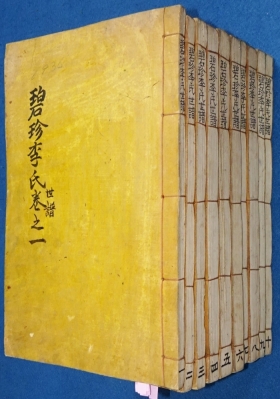 碧珍李氏世譜卷之一
碧珍李氏世譜
碧珍李氏世譜
碧珍李氏世譜
碧珍李氏世譜
碧珍李氏世譜
碧珍李氏世譜
碧珍李氏世譜
碧珍李氏世譜
碧珍李氏世譜
碧珍李氏世譜
一
二
三
四
五
六
七
八
九
十